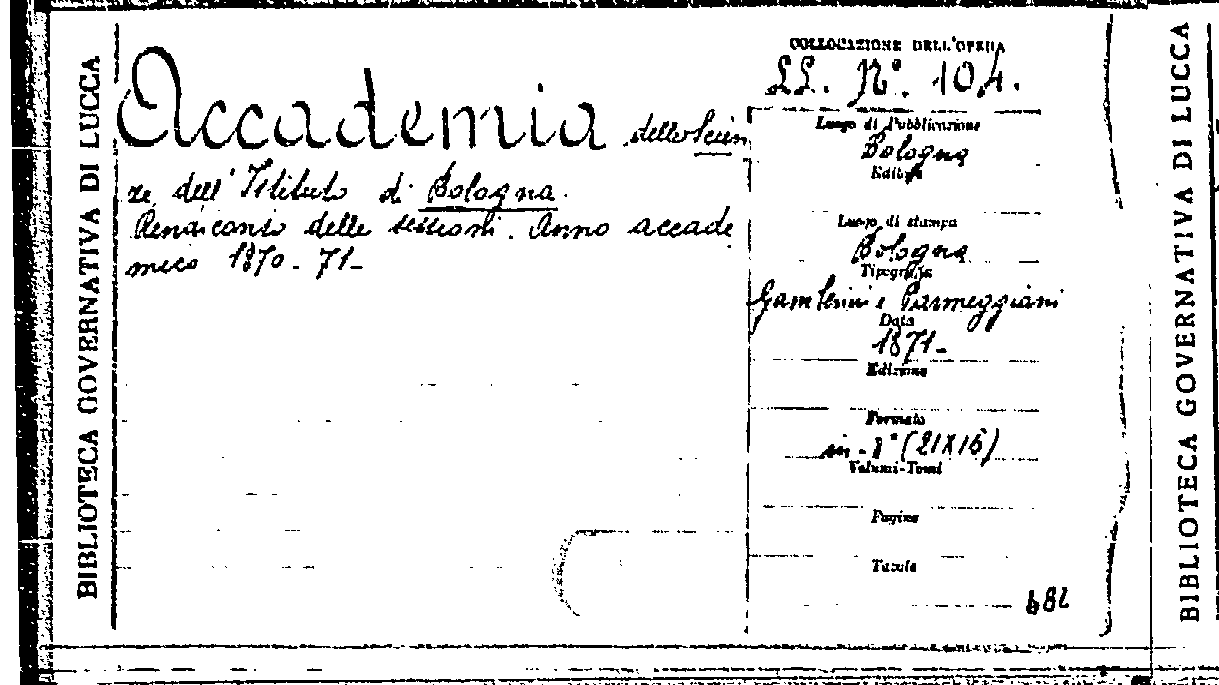 BIBLIOTECA GOVERNATIVA DI LUCCA
Accademia delle Scien
ze dell' Istituto di Bologna.
Rendiconto delle sessioni. Anno accade
mico 1870-71-
COLLOCAZIONE DELL'OPERA
LL. N°. 104.
Luogo di Pubblicazione
Bologna
Editore
Luogo di stampa
Bologna
Tipografia
Gamberini e Parmeggiani
Data
1871-
Edizione
Formato
in-8° (21X15)
Volumi-Tomi
Pagine
Tavole
682
BIBLIOTECA GOVERNATIVA DI LUCCA